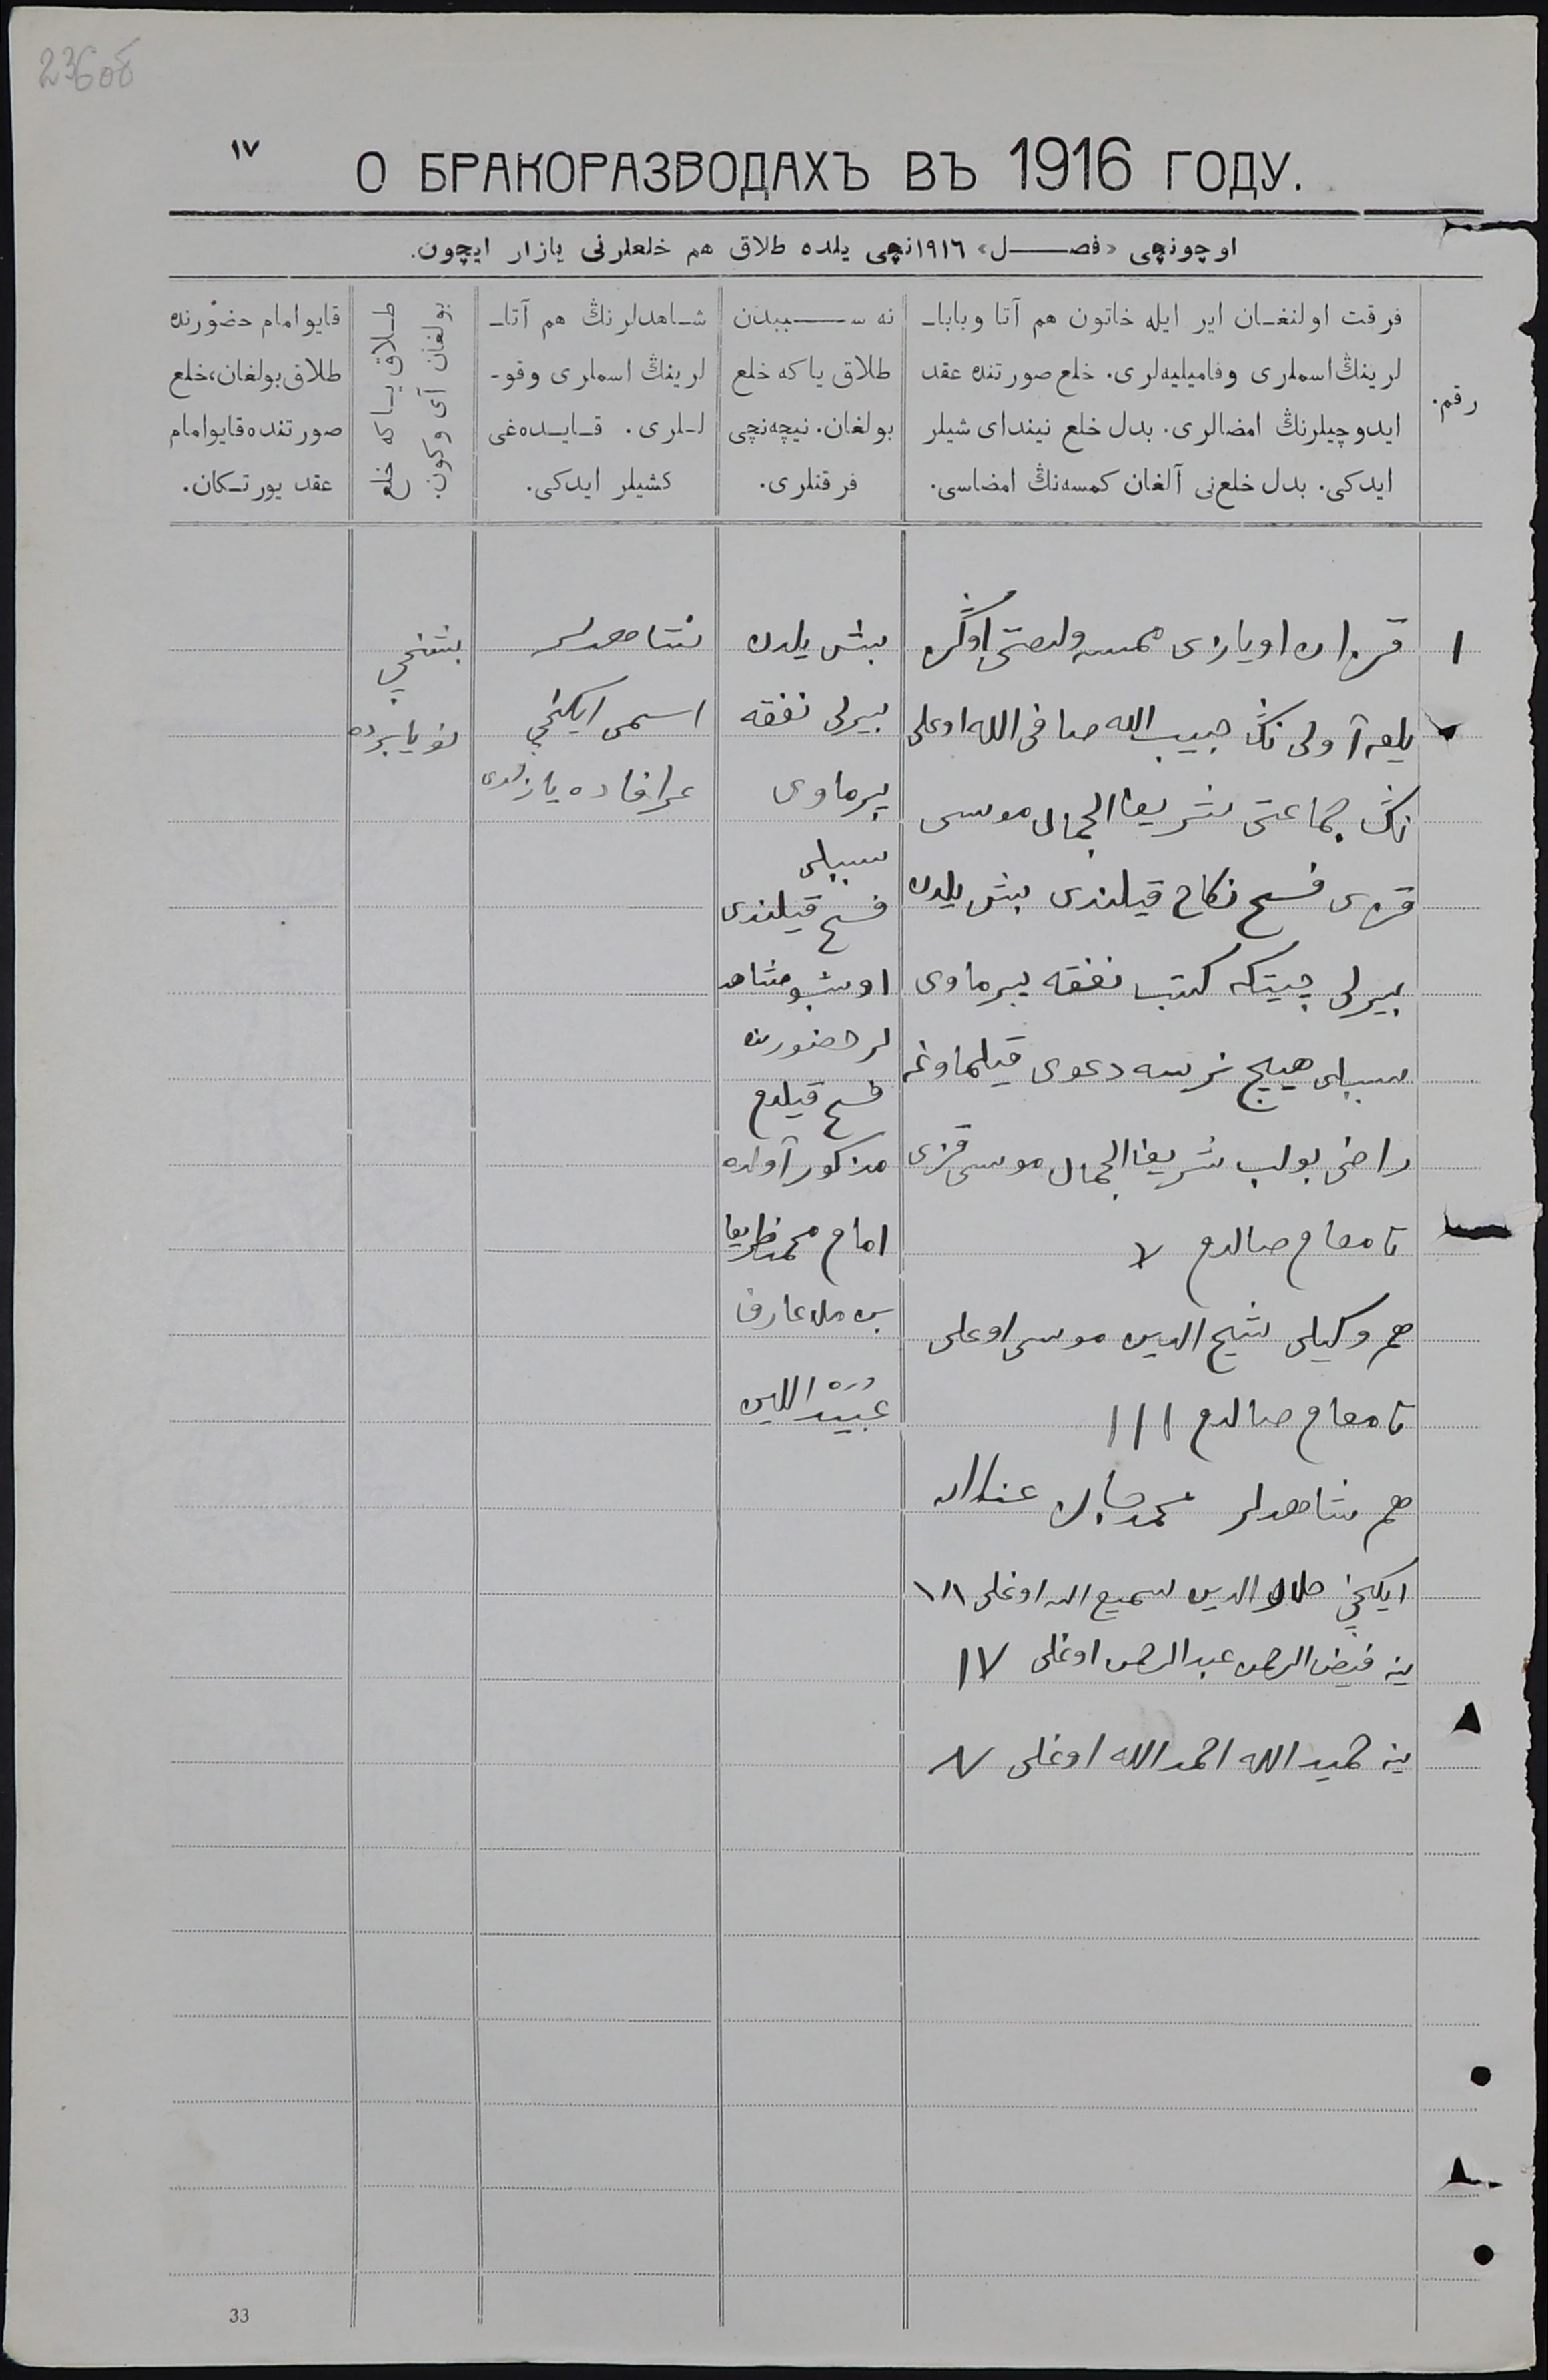 236об
١٧
О БРАКОРАЗВОДАХЪ ВЪ 1916 ГОДУ.
اوچونچی «فصل» ١٩١٦نچی یلده طلاق هم خلعلرنی یازار ایچون.
رقم.
فرقت اولنغان ایر ایله خاتون هم آتا وبابا‍ـ
لرینڭ اسملری وفامیلیه‌لری. خلع صورتنده عقد
ایدوچیلرنڭ امضالری. بدل خلع نیندای شیلر
ایدکی. بدل خلع‌نی آلغان کمسه‌نڭ امضاسی.
نه سببدن
طلاق یا که خلع
بولغان. نیچه‌نچی
فرقتلری.
شاهدلرنڭ هم آتا‍ـ
لرینڭ اسملری وقو‍ـ
لـلری. قایده‌غی
کشیلر ایدکی.
طلاق یا که خلع
بولغان آی وکون.
قایو امام حضورنده
طلاق بولغان، خلع
صورتنده قایو امام
عقد یورتکان.
١
اویازی
آولی نڭ حبیب الله صافی الله اوغلی
نڭ جماعتی شریفا الجمال موسی
قزی فسخ نکاح قیلندی بش یلدن
بیرلی چیتکه کتب نفقه بیرماوی
سببلی هیچ نرسه دعوی قیلماوغه
راضی بولب شریفا الجمال موسی قزی
تامغام صالدم ٧
هم وکیلی شیخ الدین موسی اوغلی
تامغام صالدم ١١١
هم شاهدلر محمدجان
ایکنچی جلال الدین سمیع الله اوغلی ١٨١
ینه فیض الرحمن عبدالرحمن اوغلی ١٧
ینه حمیدالله احمدالله اوغلی
بش یلدن
بیرلی نفقه
بیرماوی
سببلی
فسخ قیلندی
اوشبو شاهد
لر حضورنده
فسخ قیلدم
مذکور آولده
امام محمدظریف
بن ملا عارف
شاهدلر
اسمی ایکنچی
غرافاده یازلدی
بشنچی
نویابرده
33